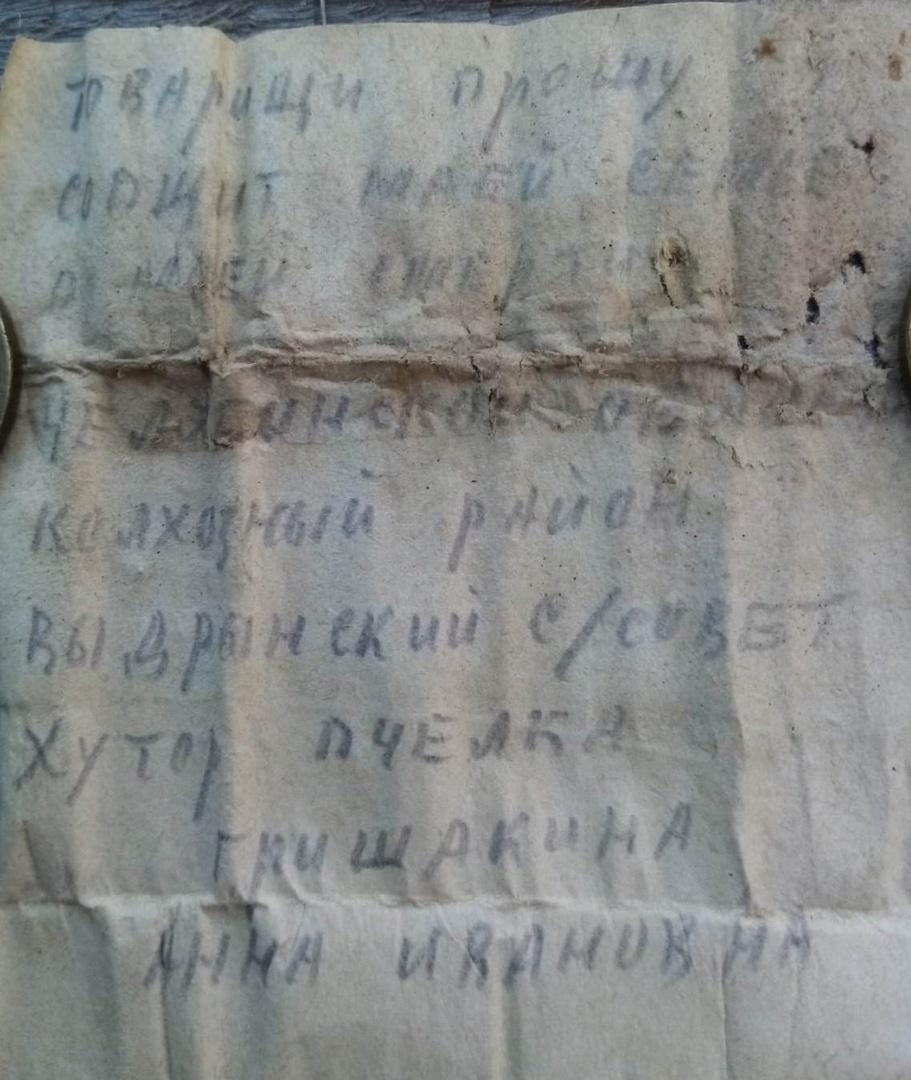 ТВАРИЩИ ПРОШУ
СОПЩИТ МАЕЙ СЕМЬЕ
О МАЕЙ СМЕРТИ
КОЛХОЗНЫЙ РАЙОН
ВЫДРЫНСКИЙ С/СОВЕТ
ХУТОР ПЧЕЛКА
ГРИШАКИНА
АННА ИВАНОВНА